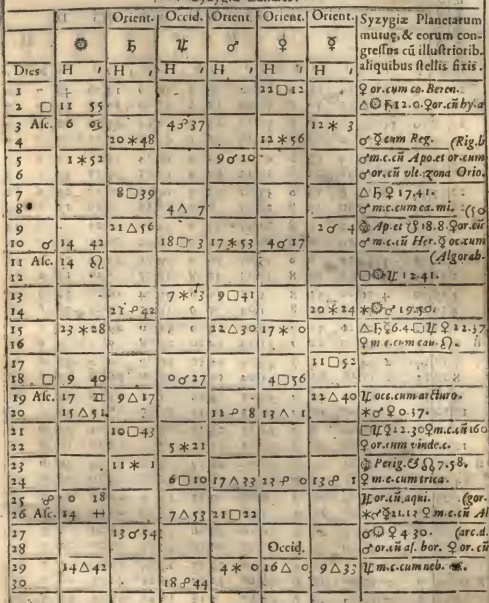 Syzygiæ Lunares.
Orient. Occid. Orient. Orient. Orient. Syzygiæ Planetarum
☼ ♄ ♃ ♂ ♀ ☿ mutuę, & eorum con-
gressus cū illustriorib.
Dies H ′ H ′ H ′ H ′ H ′ H ′ aliquibus stellis fixis.
1 22 □ 12 ♀ or.cum co. Beren.
2 □ 11 55
3 Asc. 6 4 ☍ 37 12 ⚹ 3
4 20 ⚹ 48 12 ⚹ 56 ☿ cum Reg. (Rig.
5 1 ⚹ 52 9 ☌ 10 ♂ m.c.cū Apo.et or.cum
6 ♂ or.cū vlt. zona Orio.
7 8 □ 39 △ ♄ ♀ 17.41.
8 4 △ 7 ♂ m.c.cum ca. mi.
9 21 △ 56 2 ☌ 4 Ap.et 18.8. ♀ or.cū
10 ☌ 14 42 18 □ 3 17 ⚹ 53 4 ☌ 17 ♂ m.c.cū Her. ☿ oc.cum
11 Asc. 14 ♌ (Algorab.
12 □ ☼ ♃ 12.41.
13 7 ⚹ 3 9 □ 41
14 21 ☍ 42 20 ⚹ 24 ⚹ ☼ ♂ 19.50.
15 23 ⚹ 28 22 △ 30 17 ⚹ 0 △ ♄ ☿ 6.4. □ ♃ ♀ 22.37.
16 ♀ m.c.cum cau. ♌.
17 11 □ 52
18 □ 9 40 0 ☌ 27 4 □ 56
19 Asc. 17 ♊ 9 △ 17 22 △ 40 ♃ occ.cum arcturo.
20 15 △ 51 12 ☍ 8 13 △ 1 ⚹ ♂ ♀ 0.37.
21 10 □ 43 □ ♃ ☿ 22.30 ♀ m.c.cū
22 5 ⚹ 21 ♀ or.cum vinde.c.
23 11 ⚹ 1 Perig. & ☊ 7.58.
24 6 □ 10 17 △ 33 23 ☍ 0 13 ☍ 1 ♀ m.c.cum trica.
25 ☍ 0 18 ♃ or.cū.aqui. (gor.
26 Asc. 14 ♓ 7 △ 53 21 □ 22 ⚹ ♂ ☿ 21.12 ♀ m.c.cū Al
27 13 ☌ 54 ☌ ☼ ♀ 4 30. (arc.d.
28 Occid. ♂ or.cū as. bor. ♀ or. cū
29 14 △ 42 4 ⚹ 0 16 △ 0 9 △ 33 ♃ m.c.cum neb. ♒.
30 18 ☍ 44